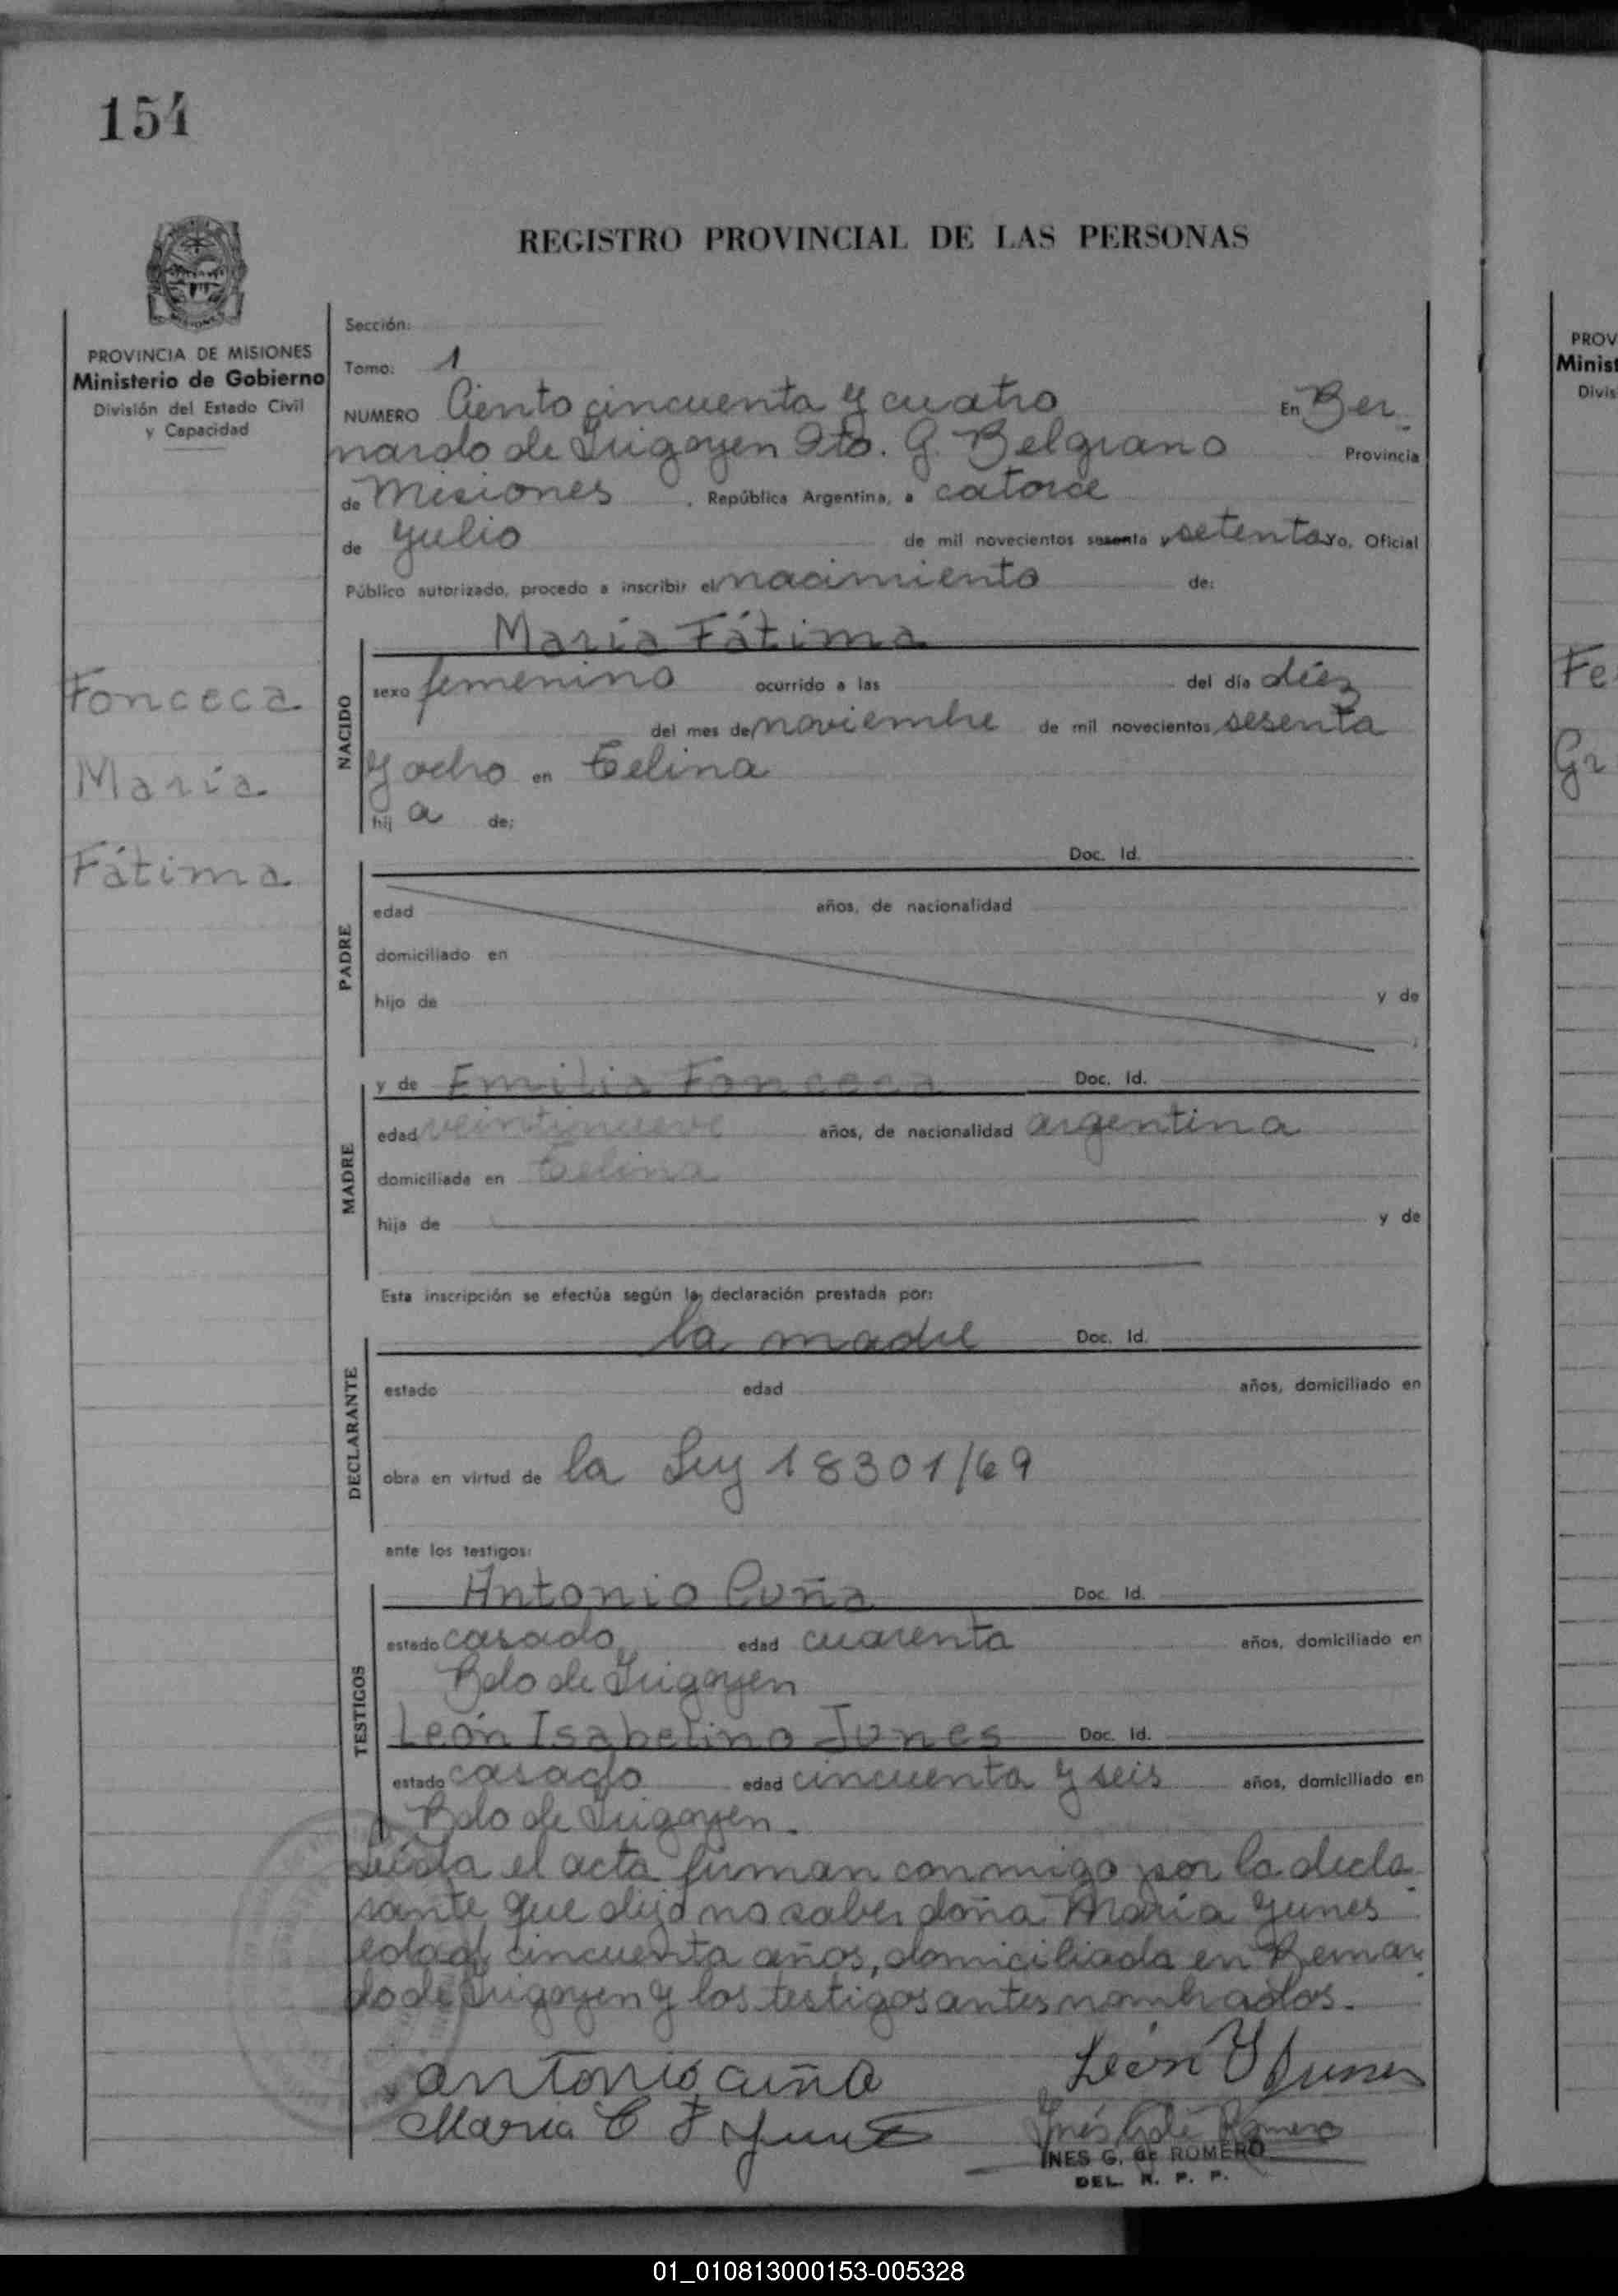 154
REGISTRO PROVINCIAL DE LAS PERSONAS
MISIONES
PROVINCIA DE MISIONES
Ministerio de Gobierno
División del Estado Civil
y Capacidad
Fonceca
María
Fátima
Sección:
Tomo: 1
NUMERO Ciento cincuenta y cuatro En Ber
nardo de Irigoyen Dto. G. Belgrano Provincia
de Misiones , República Argentina, a catorce
de Julio de mil novecientos sesenta y setenta yo, Oficial
Público autorizado, procedo a inscribir el nacimiento de:
NACIDO
María Fátima
sexo femenino ocurrido a las del día diez
del mes de noviembre de mil novecientos sesenta
y ocho en Celina
hij a de:
PADRE
Doc. Id.
edad años, de nacionalidad
domiciliado en
hijo de y de
MADRE
y de Emilia Fonceca Doc. Id.
edad veintinueve años, de nacionalidad argentina
domiciliada en Celina
hija de y de
Esta inscripción se efectúa según la declaración prestada por:
DECLARANTE
la madre Doc. Id.
estado edad años, domiciliado en
obra en virtud de la Ley 18301/69
ante los testigos:
TESTIGOS
Antonio Cuña Doc. Id.
estado casado edad cuarenta años, domiciliado en
Bdo de Irigoyen
León Isabelino Junes Doc. Id.
estado casado edad cincuenta y seis años, domiciliado en
Bdo de Irigoyen.
Leída el acta firman conmigo por la decla
rante que dijo no saber doña María Yunes
edad cincuenta años, domiciliada en Bernar
do de Irigoyen y los testigos antes nombrados.
antonio cuña León Y Junes
Maria C F Yunes Inés G de Romero
INES G. de ROMERO
DEL. R. P. P.
PROV
Minist
Divis
Fe
Gr
01_010813000153-005328